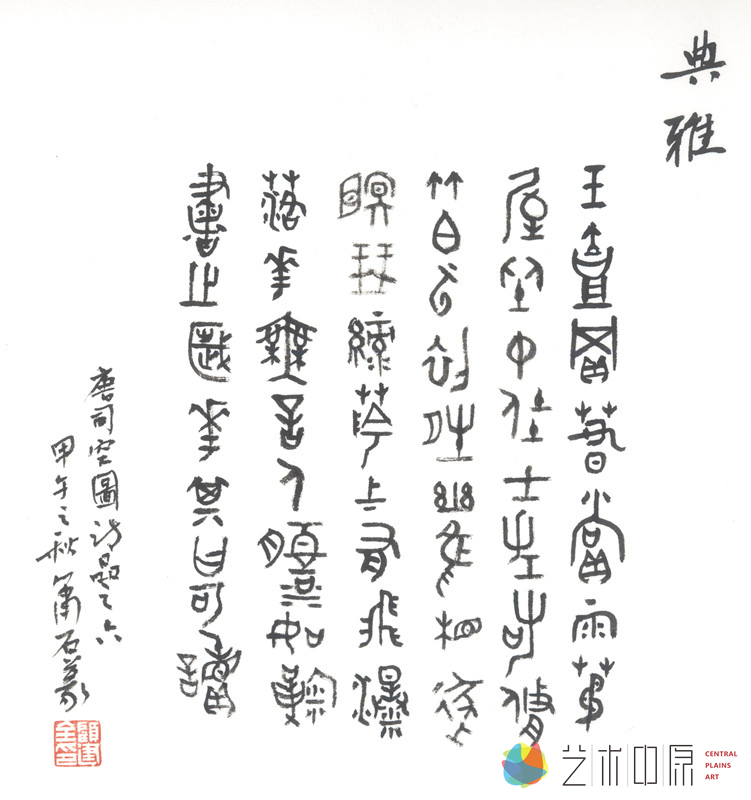 典雅
玉壺買春賞雨茆
屋坐中佳士左右修
竹白雲初晴幽鳥相逐
眠琴綠陰上有飛瀑
落花無言人淡如菊
書之歲華其曰可讀
唐司空圖詩品之六
甲午之秋石篆
艺术中原
CENTRAL
PLAINS
ART